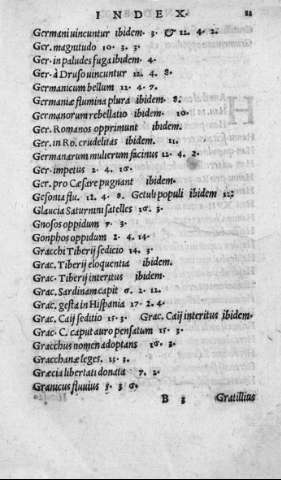 INDEX. 11
Germani uincuntur ibidem. 3. & 12. 4. 2.
Ger. magnitudo 10. 3. 3.
Ger. in paludes fuga ibidem. 4.
Ger. à Druso uincuntur 12. 4. 8.
Germanicum bellum 12. 4. 7.
Germaniæ flumina plura ibidem. 8.
Germanorum rebellatio ibidem. 10.
Ger. Romanos opprimunt ibidem.
Ger. in Ro. crudelitas ibidem. 11.
Germanarum mulierum facinus 12. 4. 2.
Ger. impetus 2. 4. 10.
Ger. pro Cæsare pugnant ibidem.
Gesonia flu. 12. 4. 8. Getuli populi ibidem 12;
Glaucia Saturnini satelles 16. 3.
Gnosos oppidum 7. 3.
Gonphos oppidum 2. 4. 14.
Gracchi Tiberij sedicio 14. 3.
Grac. Tiberij eloquentia ibidem.
Grac. Tiberij interitus ibidem.
Grac. Sardinam capit 6. 2. 12.
Grac. gesta in Hispania 17. 2. 4.
Grac. Caij seditio 15. 3. Grac. Caij interitus ibidem.
Grac. C. caput auro pensatum 15. 3.
Gracchus nomen adoptans 16. 3.
Gracchanæ leges. 15. 3.
Græcia libertati donata 7. 2.
Granicus fluuius 5. 3 6.
B 3 Gratillius